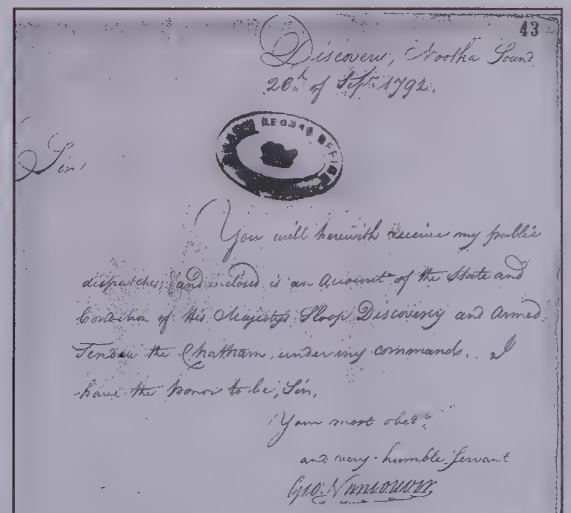 43
Discovery, Nootka Sound
26th of Sept 1792.
RECORD OFFICE
Sir,
You will herewith receive my public
dispatches; and inclosed is an Account of the State and
Condition of His Majestys Sloop Discovery and Armed
Tender the Chatham, under my commands. I
have the honor to be, Sir,
Your most obedt
and very humble Servant
Geo. Vancouver